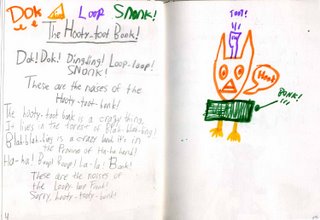 Dok Loop Snonk!
The Hooty-toot Bonk!
Dok! Dok! Dingding! Loop-loop!
SNONK!
These are the noises of the
Hooty-toot-bonk!
The hooty-toot bonk is a crazy thing,
It lives in the forest of Blah-blah-bing!
Blah-blah-bing is a crazy land, it's in
the Province of Ha-ha-hand!
Ha-ha! Bing! Boop! La-la! Bonk!
These are the noises
of the
Loopy-loo Fonk!
Sorry, hooty-tooty-bonk!
4
Toot!
Hoot
BONK!
!!!